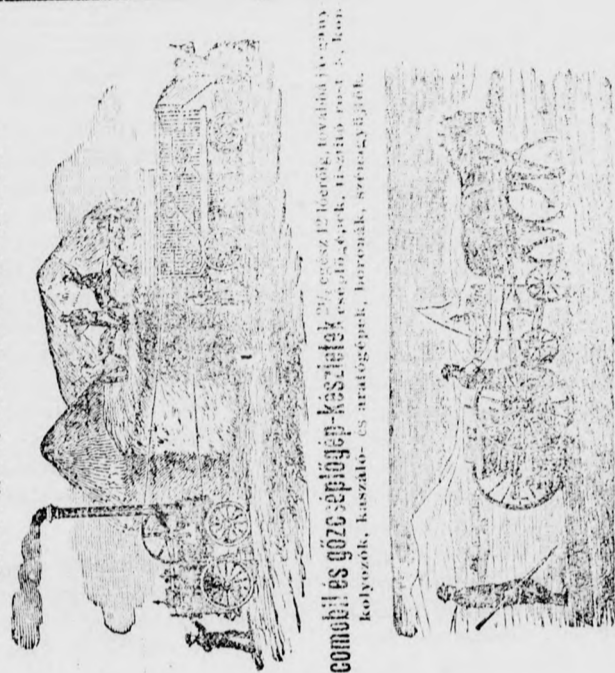 comobil és gőzcséplőgép-készletek 2½ egész 12 lóerőig, továbbá járgány
cséplőgépek, tisztító rosták, kon-
kolyozók, kaszáló- és aratógépek, boronák, szénagyűjtők.